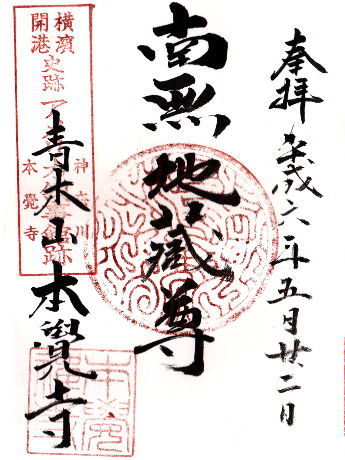 奉拝 平成六年五月廿二日
南無地蔵尊
青木山本覺寺
横濱
開港
史跡
神奈川
本覺寺